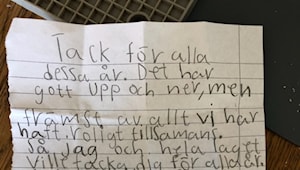 Tack för alla
dessa år. Det har
gott upp och ner, men
främst av allt vi har
haft rollat tillsamans.
Så jag och hela laget
ville tacka dig för alla år.